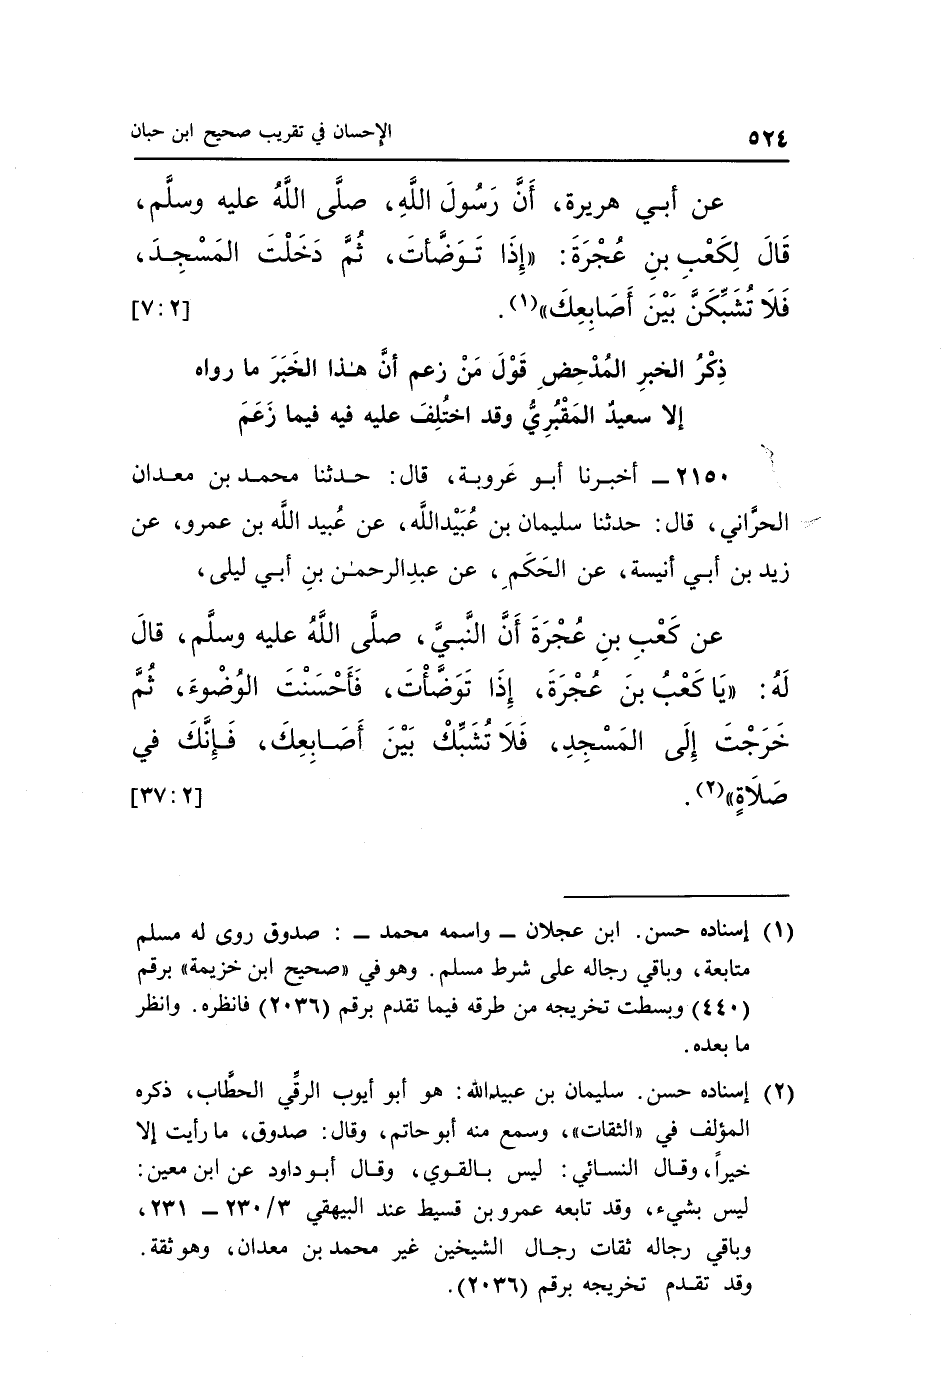 ٥٢٤ الإحسان في تقريب صحيح ابن حبان
عن أبـي هريرة، أَنَّ رَسُولَ اللَّهِ، صلَّى اللَّهُ عليه وسلَّم،
قَالَ لِكَعْبِ بنِ عُجْرَةَ: «إِذَا تَـوَضَّأتَ، ثُمَّ دَخَلْتَ المَسْجِـدَ،
فَلَا تُشَبِّكَنَّ بَيْنَ أَصَابِعِكَ»(١). [٢:٧]
ذِكْرُ الخبرِ المُدْحِضِ قَوْلَ مَنْ زعم أنَّ هـٰذا الخَبَرَ ما رواه
إلا سعيدٌ المَقْبُرِيُّ وقد اختُلِفَ عليه فيه فيما زَعَمَ
٢١٥٠ ـ أخبـرنا أبـو عَروبـة، قال: حـدثنا محمـد بن معـدان
الحرَّاني، قال: حدثنا سليمان بن عُبَيْداللَّه، عن عُبيد اللَّه بن عمرو، عن
زيد بن أبـي أنيسة، عن الحَكَمِ، عن عبدِالرحمـٰن بنِ أبـي ليلى،
عن كَعْبِ بنِ عُجْرَةَ أَنَّ النَّبـيَّ، صلَّى اللَّهُ عليه وسلَّم، قالَ
لَهُ: «يَا كَعْبُ بنَ عُجْرَةَ، إِذَا تَوَضَّأْتَ، فَأَحْسَنْتَ الوُضُوءَ، ثُمَّ
خَرَجْتَ إِلَى المَسْجِدِ، فَلَا تُشَبِّكْ بَيْنَ أَصَـابِعِكَ، فَـإِنَّكَ في
صَلَاةٍ»(٢). [٢:٣٧]
(١) إسناده حسن. ابن عجلان ـ واسمه محمد ـ : صدوق روى له مسلم
متابعة، وباقي رجاله على شرط مسلم. وهو في «صحيح ابن خزيمة» برقم
(٤٤٠) وبسطت تخريجه من طرقه فيما تقدم برقم (٢٠٣٦) فانظره. وانظر
ما بعده.
(٢) إسناده حسن. سليمان بن عبيدالله: هو أبو أيوب الرقِّي الحطَّاب، ذكره
المؤلف في «الثقات»، وسمع منه أبو حاتم، وقال: صدوق، ما رأيت إلا
خيراً، وقـال النسائي: ليس بـالقوي، وقـال أبـو داود عن ابن معين:
ليس بشيء، وقد تابعه عمرو بن قسيط عند البيهقي ٢٣٠/٣ ـ ٢٣١،
وباقي رجاله ثقات رجـال الشيخين غير محمـد بن معـدان، وهو ثقة.
وقد تقـدم تخريجه برقم (٢٠٣٦).